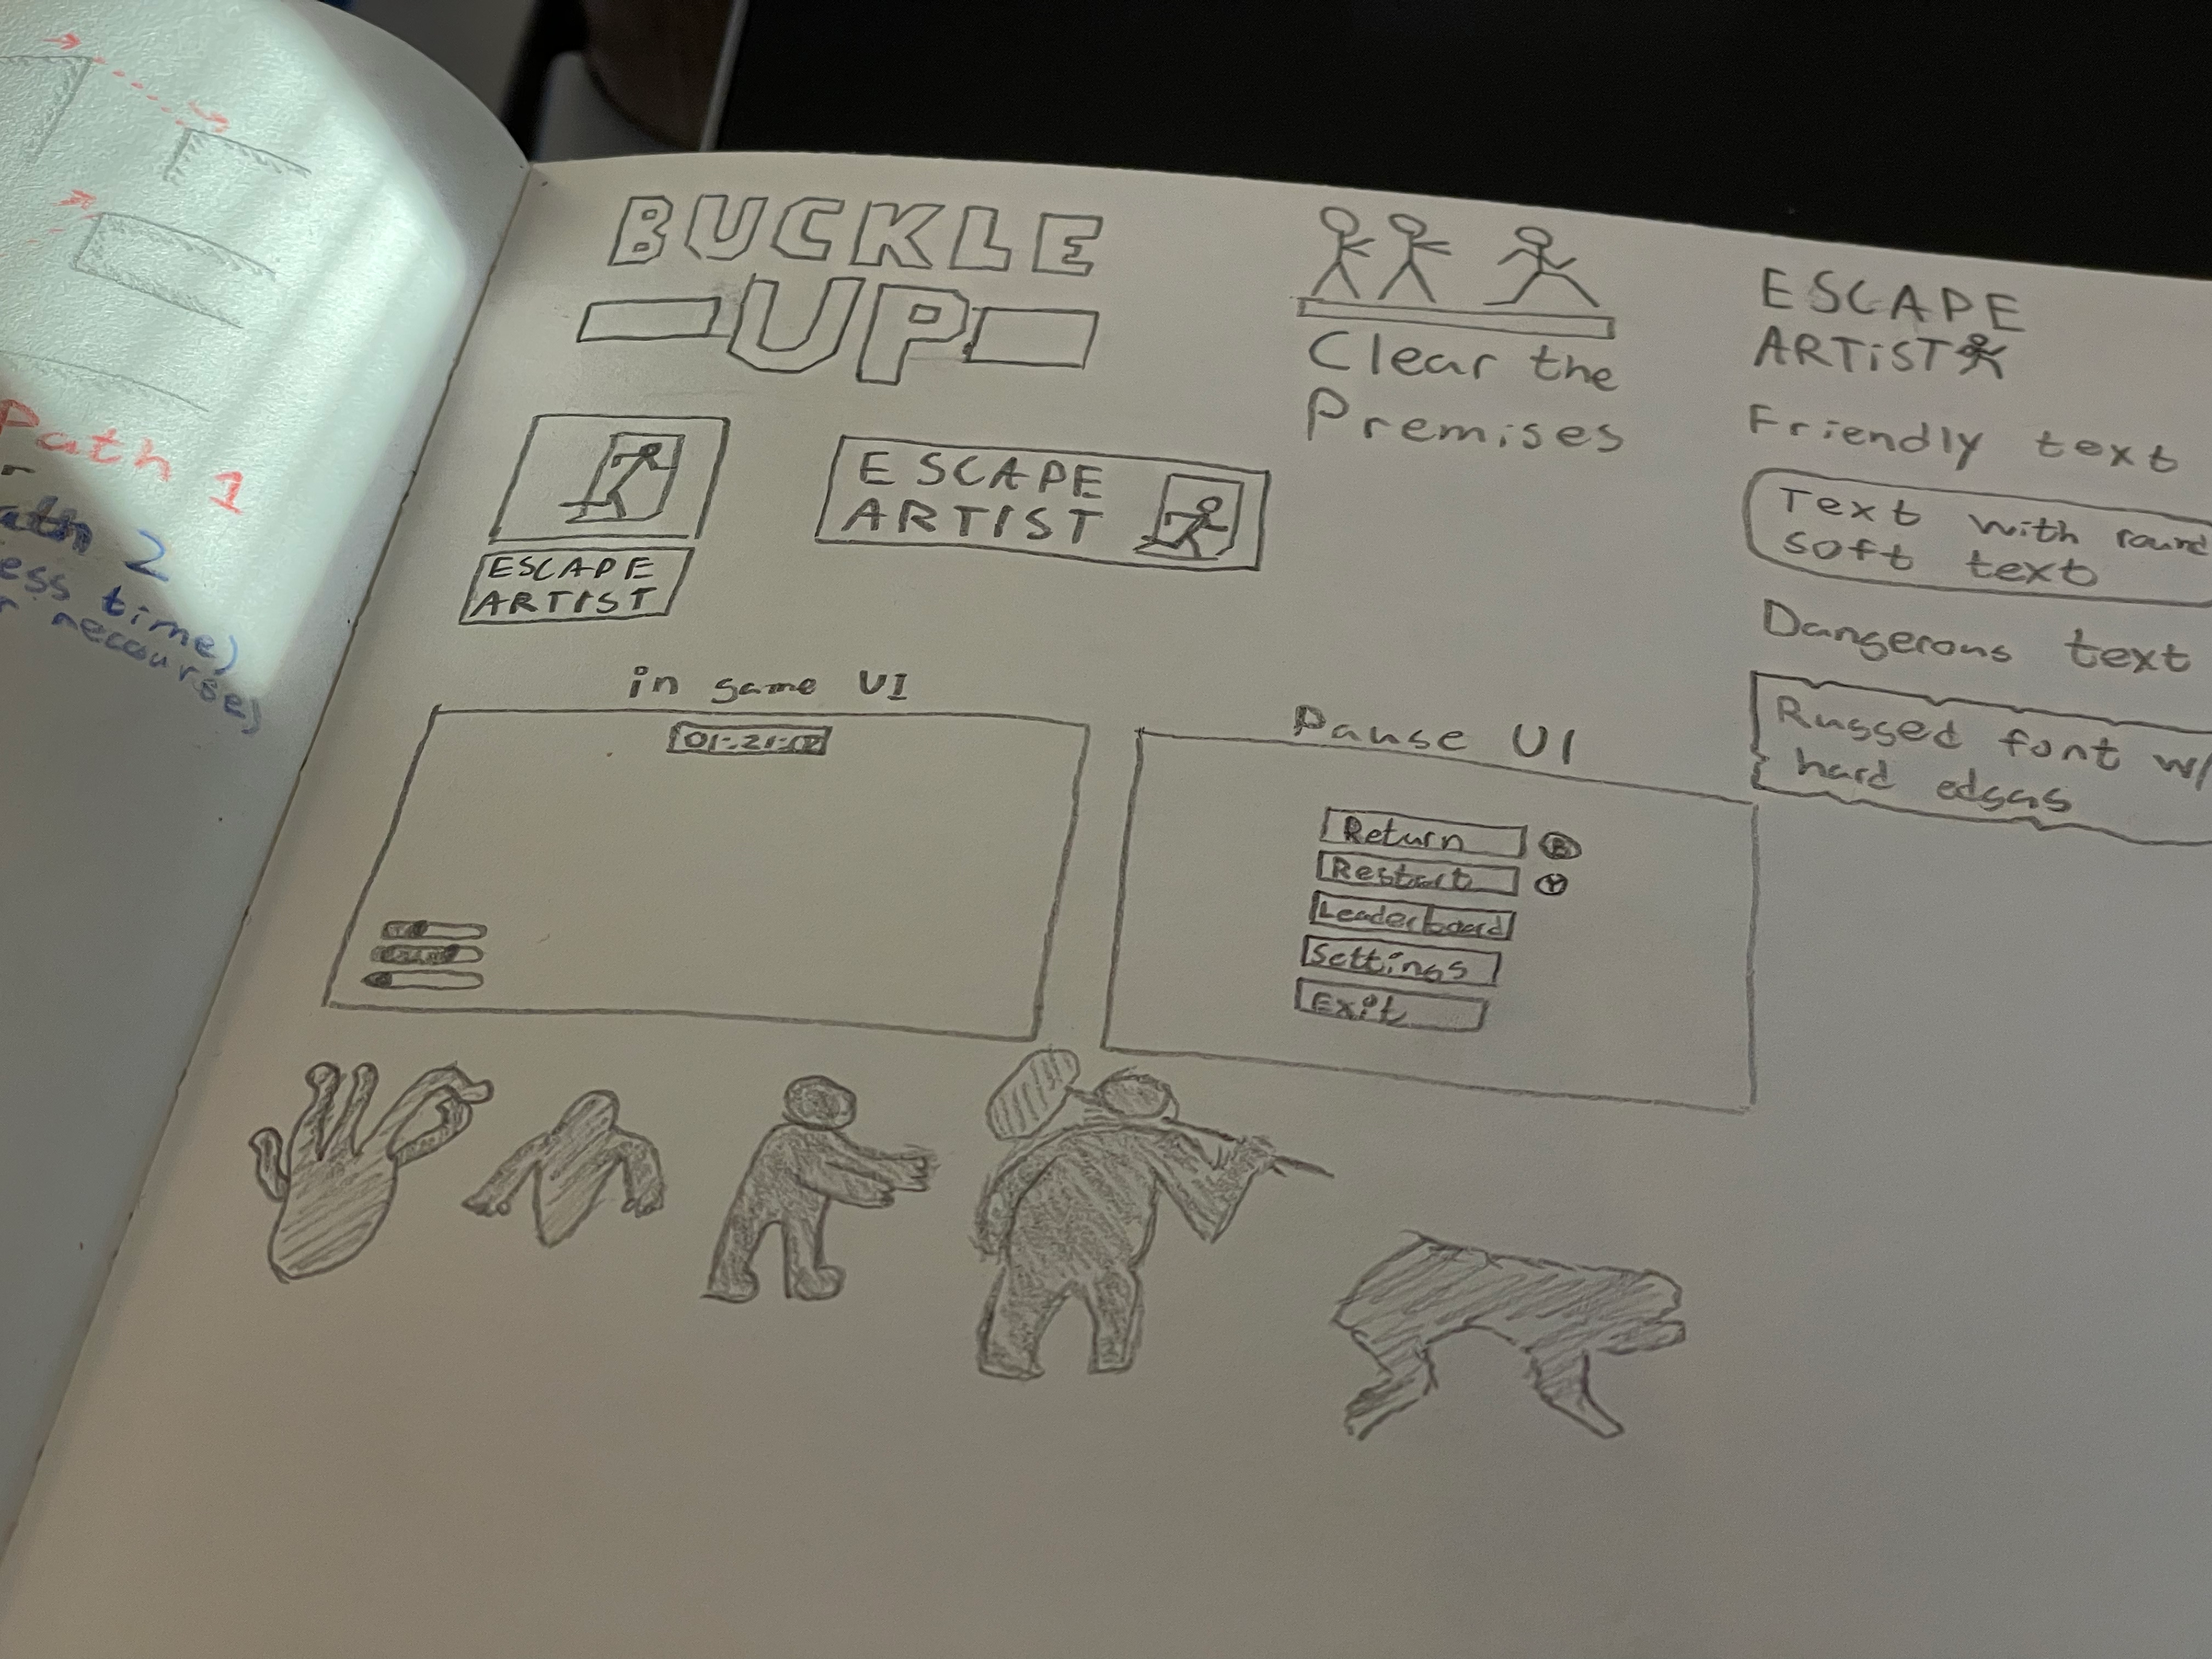 Path 1
ath 2
ess time)
recourse)
BUCKLE
UP
Clear the
Premises
ESCAPE
ARTiST
ESCAPE
ARTIST
ESCAPE
ARTIST
Friendly text
Text with round
soft text
Dangerous text
Rugged font w/
hard edges
in game UI
01:21:02
Pause UI
Return B
Restart Y
Leaderboard
Settings
Exit